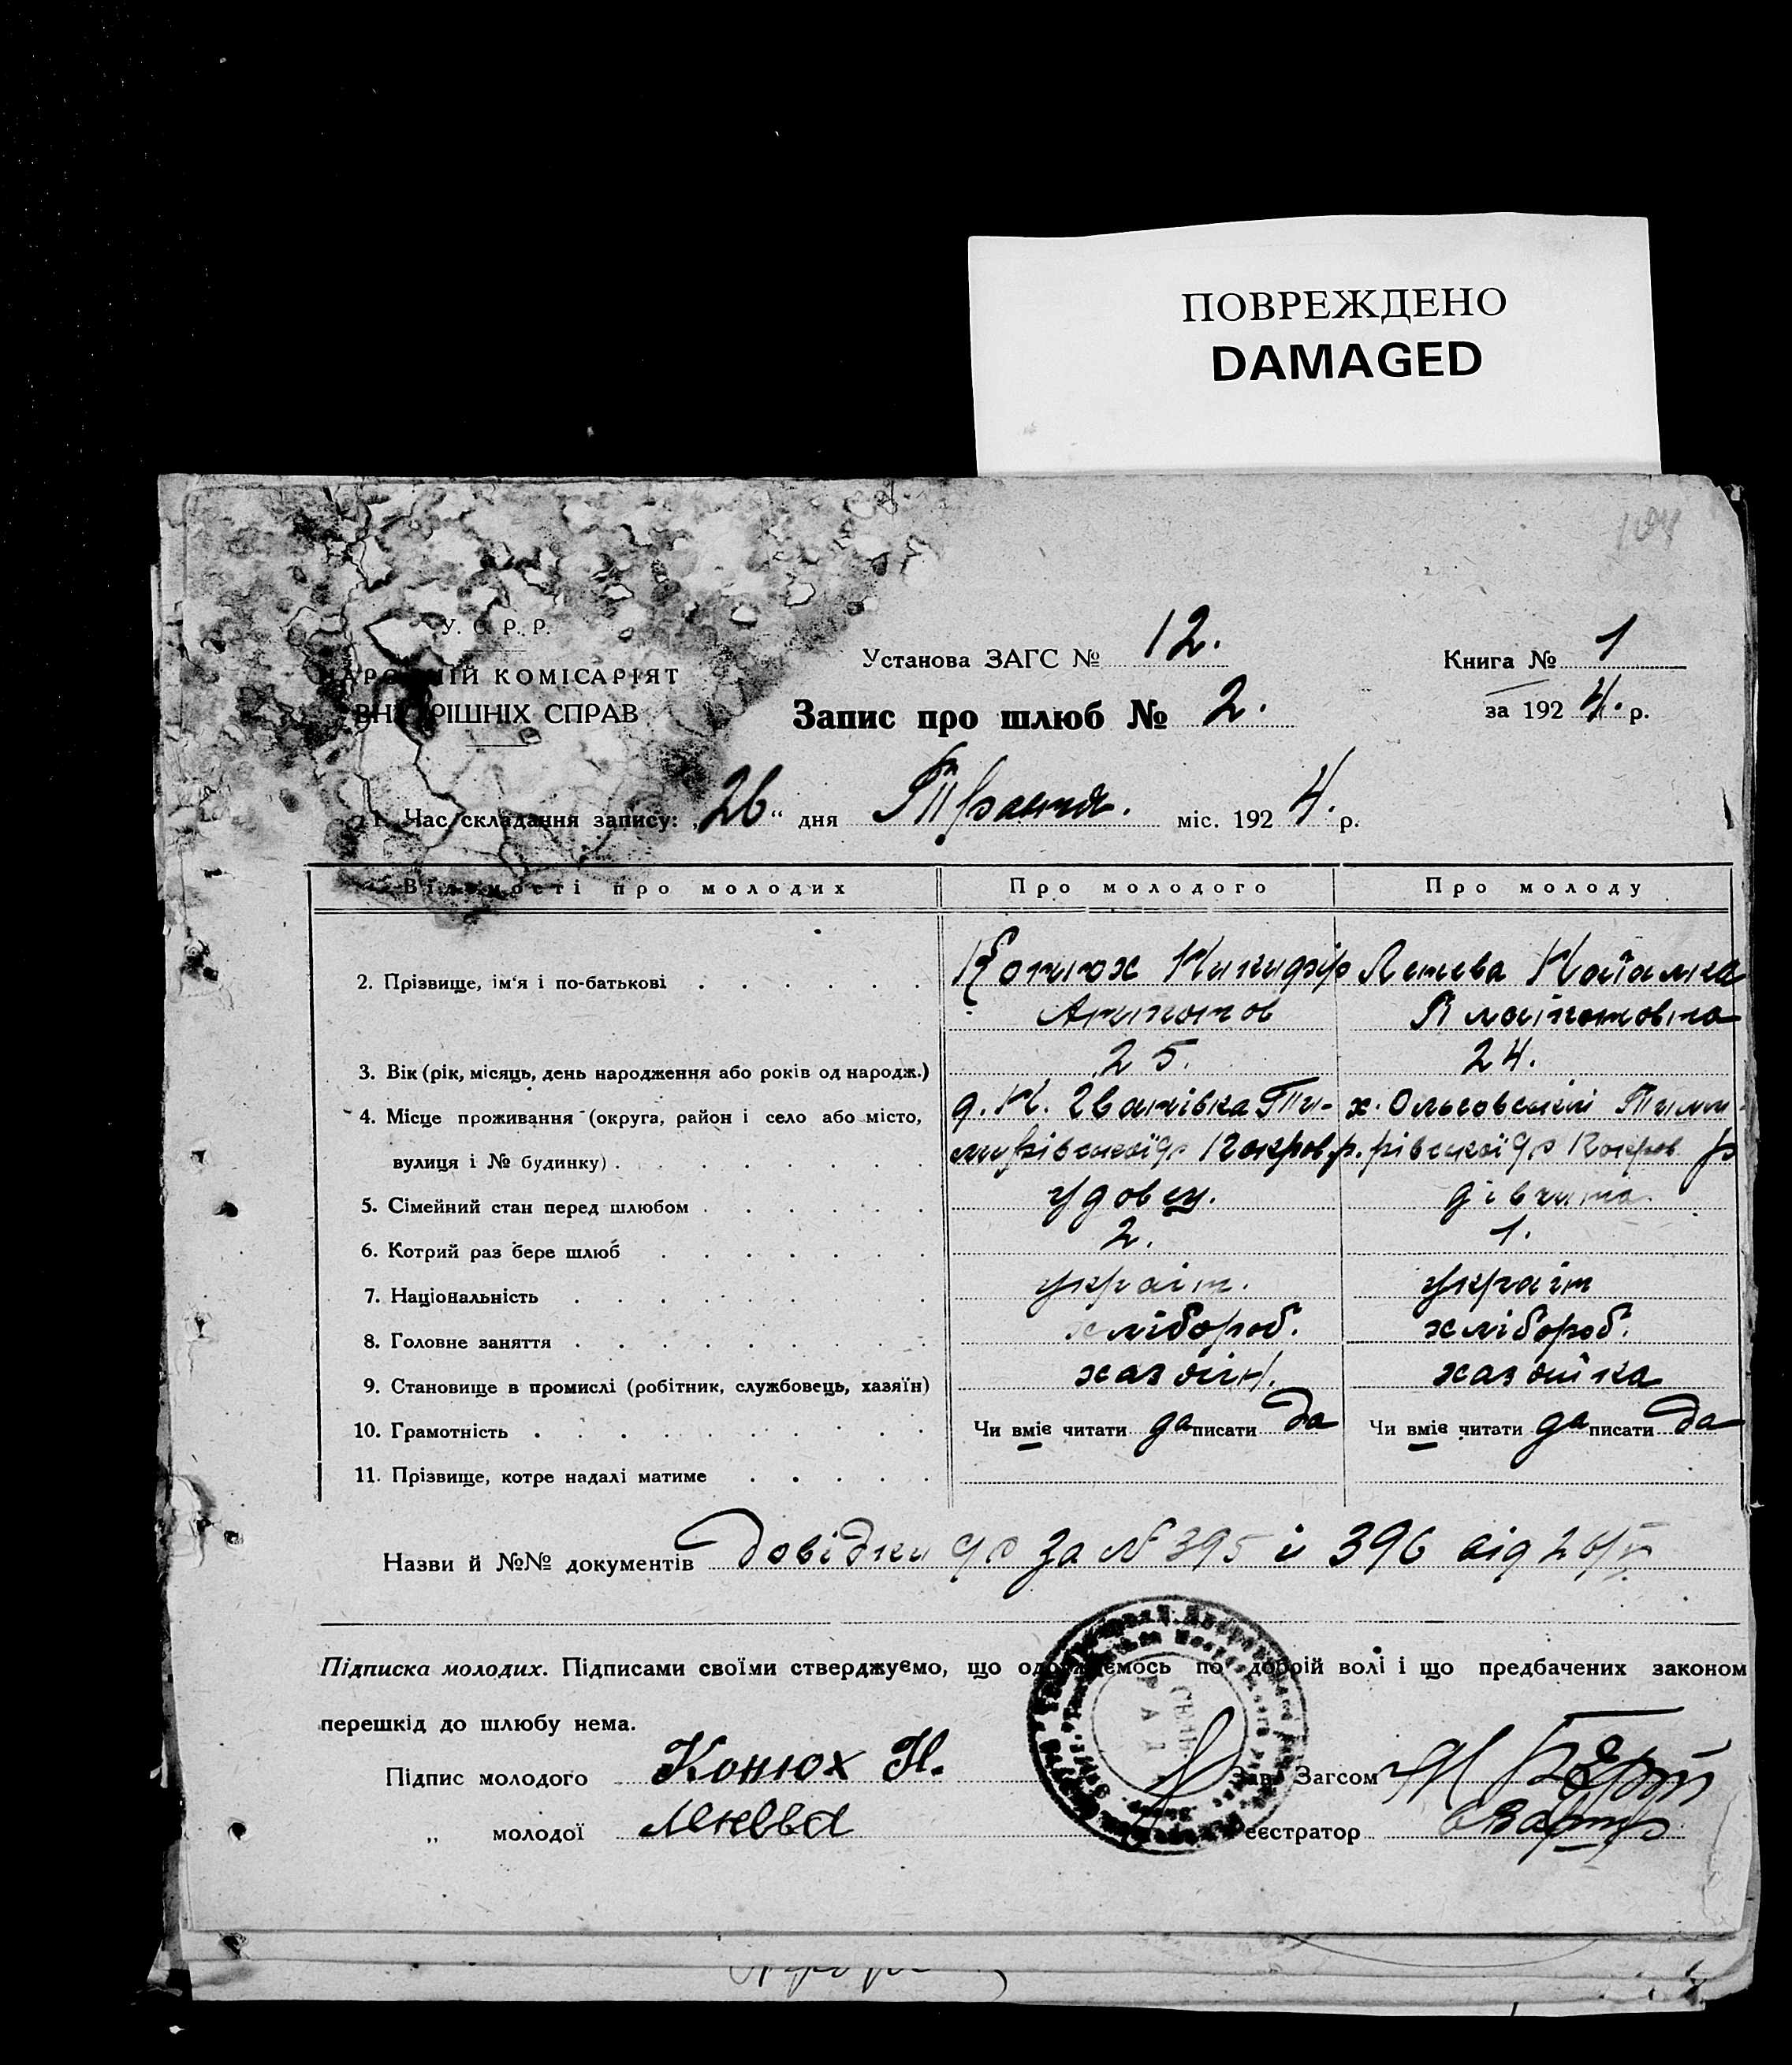 ПОВРЕЖДЕНО
DAMAGED
104
У. С. Р. Р.
НАРОДНІЙ КОМІСАРІЯТ
ВНУТРІШНІХ СПРАВ
Установа ЗАГС № 12.
Книга № 1
за 1924. р.
Запис про шлюб № 2.
1. Час складання запису: „26“ дня Травня. міс. 1924. р.
Відомості про молодих Про молодого Про молоду
2. Прізвище, ім'я і по-батькові Конюх Никифір Ленева Наталка
Антонов Платоновна
3. Вік (рік, місяць, день народження або років од народж.) 25. 24.
4. Місце проживання (округа, район і село або місто, д. Н. Іванівка х. Ольговський
вулиця і № будинку) Покров. р. рівської Покров р
5. Сімейний стан перед шлюбом удовец. дівчина.
6. Котрий раз бере шлюб 2. 1.
7. Національність україн. україн
8. Головне заняття хлібороб. хлібороб.
9. Становище в промислі (робітник, службовець, хазяїн) хазяін. хазяйка
10. Грамотність Чи вміє читати да писати да Чи вміє читати да писати да
11. Прізвище, котре надалі матиме
Назви й №№ документів Довідки за № 395 і 396 від 26/V
Підписка молодих. Підписами своїми стверджуємо, що одружуємось по добрій волі і що предбачених законом
перешкід до шлюбу нема.
Підпис молодого Конюх Н. Зав. Загсом
„ молодої Ленева Реєстратор